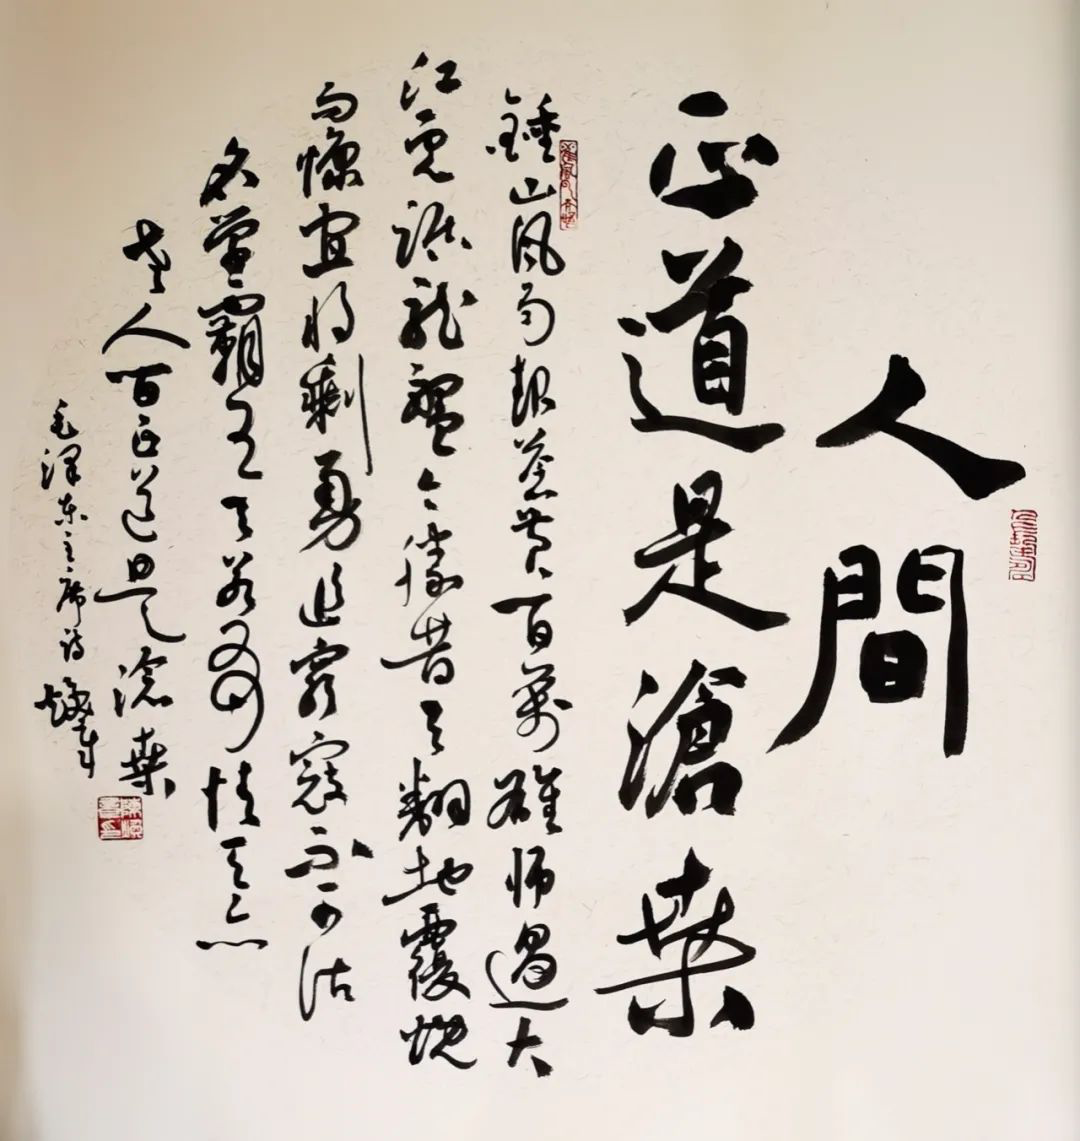 人間
正道是滄桒
鍾山風雨起蒼黃百萬雄師過大
江虎踞龍盤今勝昔天翻地覆慨
而慷宜將剩勇追窮寇不可沽
名學霸王天若有情天亦
老人間正道是滄桒
毛澤东主席詩